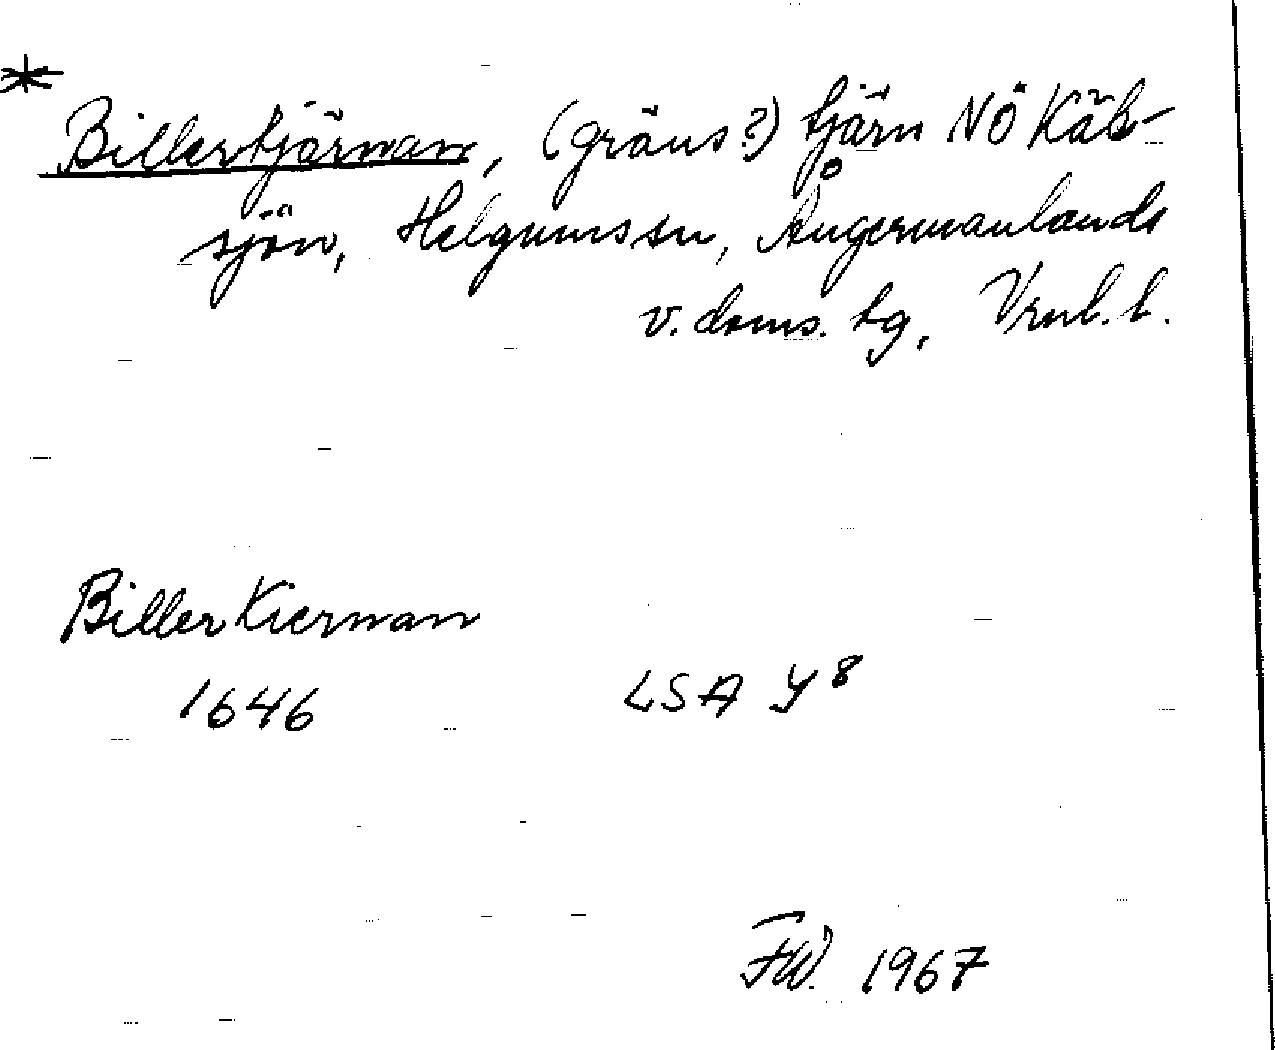 * Billertjärnan, (gräns?) tjärn NÖ Käl-
sjön, Helgums sn, Ångermanlands
v. doms. tg, Vrnl. l.
Biller Kiernan
1646 LSA Y 8
FW. 1967